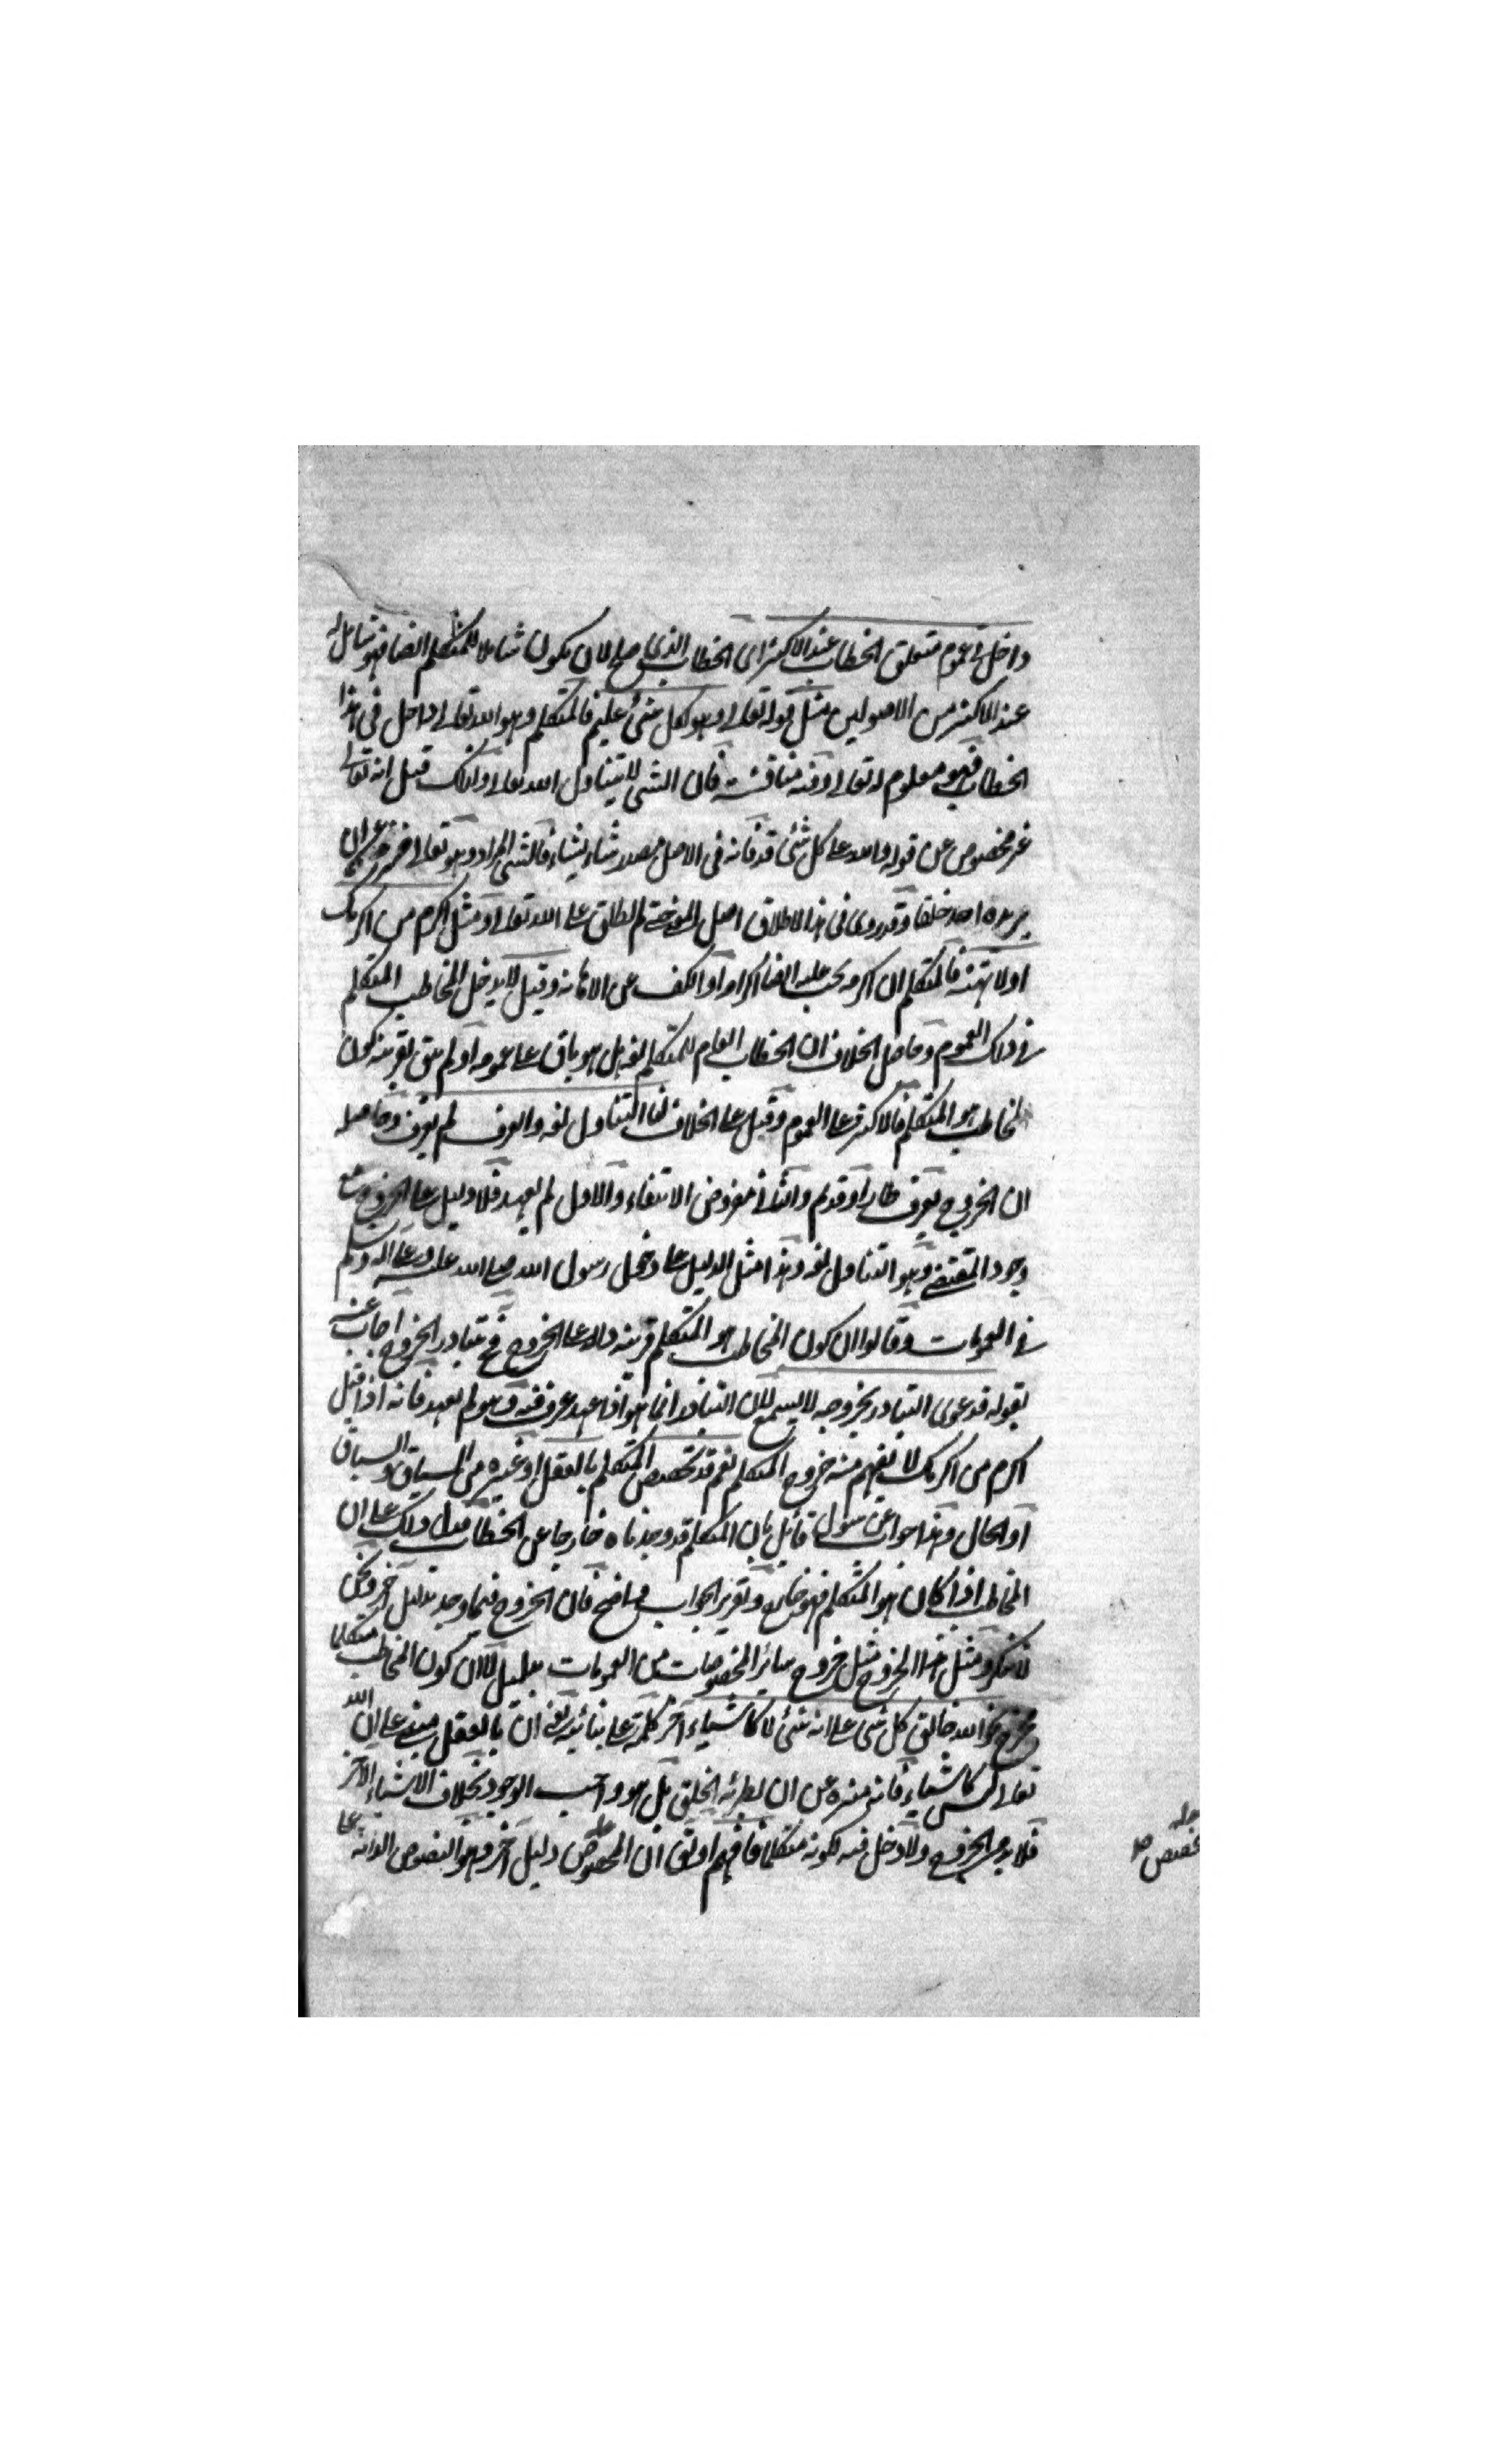 داخل في عموم متعلق الخطاب عند الاكثر اى الخطاب الذى صلح لان يكون شاملا للمتكلم ايضا فهو شامل له
عند الاكثر من الاصوليين مثل قوله تعالى وهو بكل شئ عليم فالمتكلم وهو الله تعالى داخل فى هذا
الخطاب فهو معلوم له تعالى وفيه مناقشة فان الشئ لا يتناول الله تعالى ولذلك قيل انه تعالى
غير مخصوص عن قوله والله على كل شئ قدير فانه فى الاصل مصدر شاء يشاء فالشئ المراد وهو تعالى
يريده احد خلقا وقد روى فى هذا الاطلاق اصل اللغة لم يطلق على الله تعالى ومثل اكرم من اكرمك
اولا تهنه فالمتكلم ان اكرمه يجب عليه ايضا اكرامه او الكف عن الاهانة وقيل لا يدخل المخاطب المتكلم
في ذلك العموم وحاصل الخلاف ان الخطاب العام للمتكلم لغة هل هو باق على عمومه او لم يبق بقرينة كون
المخاطب هو المتكلم فالاكثر على العموم وقيل على الخلاف لنا التناول لغة والعرف لم يعرف وحاصله
ان الخروج بعرف طار او قديم والثاني مفروض الانتفاء والاول لم يعهد فلا دليل على الخروج مع
وجود المقتضي وهو التناول لغة وهذا مثل الدليل على دخول رسول الله صلى الله عليه وعلى اله وسلم
في العمومات وقالوا ان كون المخاطب هو المتكلم قرينة دالة على الخروج فيتبادر الخروج اجاب عنه
بقوله فدعوى التبادر بخروجه لا يسمع لان التبادر انما هو اذا عهد عرف فيه وهو لم يعهد فانه اذا قيل
اكرم من اكرمك لا يفهم منه خروج المتكلم نعم قد تخصيص المتكلم بالعقل او غيره من السياق والسباق
او الحال وهذا جواب عن سوال قائل بان المتكلم قد وجدناه خارجا عن الخطاب فدل ذلك على ان
المخاطب اذا كان هو المتكلم فهو خارج وتقرير الجواب واضح فان الخروج فيما وجد بدليل اخر ونحن
لا ننكره ومثل هذا الخروج مثل خروج سائر المخصوصات من العمومات بدليل لا لان كون المخاطب متكلما
مخرج نحو الله خالق كل شئ على انه شئ لا كالاشياء اخر كلمة على بنائية يعني ان بالعقل مبني على ان الله
تعالى ليس كالاشياء فانه منزه عن ان يطرئه الخلق بل هو واجب الوجود بخلاف الاشياء الاخر
فلا بد من الخروج ولا دخل فيه لكونه متكلما فافهم او يق ان المخصص دليل اخر وهو النصوص الدالة على